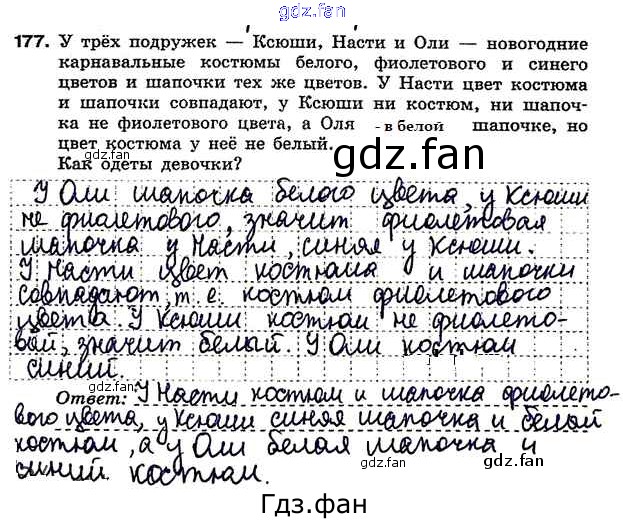 gdz.fan
177. У трёх подружек — Ксюши, Насти и Оли — новогодние
карнавальные костюмы белого, фиолетового и синего
цветов и шапочки тех же цветов. У Насти цвет костюма
и шапочки совпадают, у Ксюши ни костюм, ни шапоч-
ка не фиолетового цвета, а Оля - в белой шапочке, но
цвет костюма у неё не белый.
Как одеты девочки?
gdz.fan
У Оли шапочка белого цвета, у Ксюши
не фиолетового, значит фиолетовая
шапочка у Насти, синяя у Ксюши.
У Насти цвет костюма и шапочки
совпадают, т. е. костюм фиолетового
цвета. У Ксюши костюм не фиолето-
вый, значит белый. У Оли костюм
синий.
gdz.fan
gdz.fan
Ответ: У Насти костюм и шапочка фиолето-
вого цвета, у Ксюши синяя шапочка и белый
костюм, а у Оли белая шапочка и
синий костюм.
gdz.fan
gdz.fan
gdz.fan
Гдз.фан